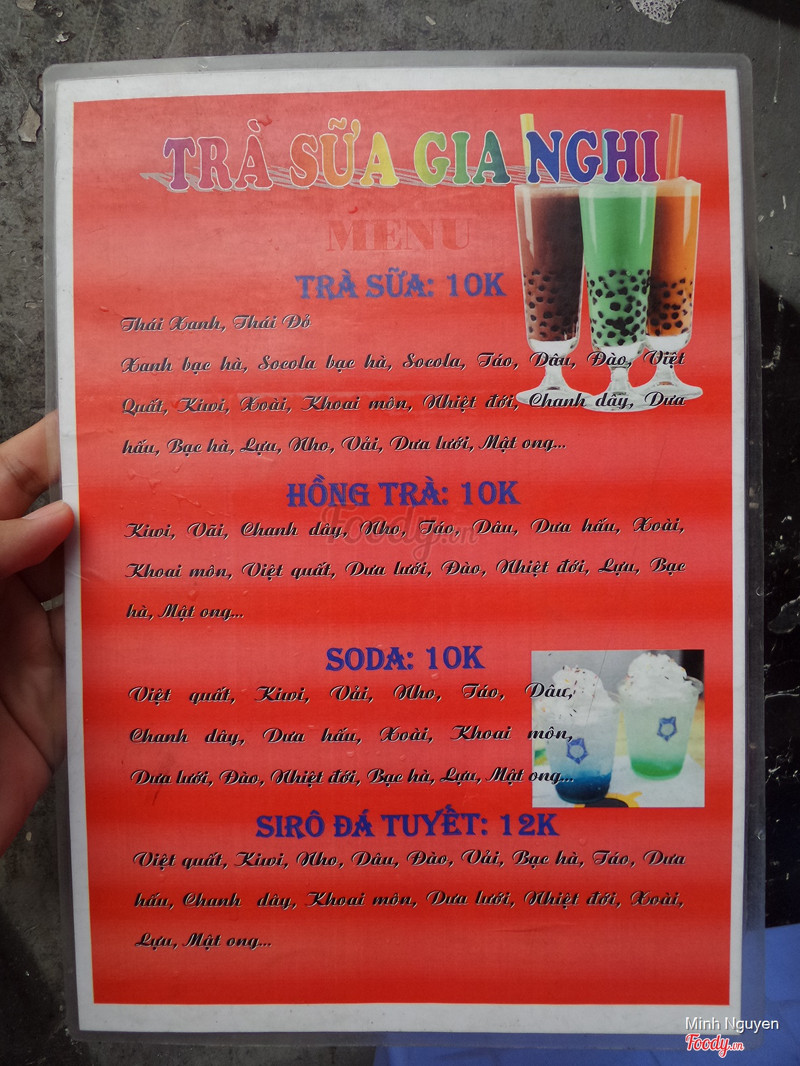 TRÀ SỮA GIA NGHI
MENU
TRÀ SỮA: 10K
Thái Xanh, Thái Đỏ
Xanh bạc hà, Socola bạc hà, Socola, Táo, Dâu, Đào, Việt
Quất, Kiwi, Xoài, Khoai môn, Nhiệt đới, Chanh dây, Dưa
hấu, Bạc hà, Lựu, Nho, Vải, Dưa lưới, Mật ong...
HỒNG TRÀ: 10K
Kiwi, Vãi, Chanh dây, Nho, Táo, Dâu, Dưa hấu, Xoài,
Foody.vn
Khoai môn, Việt quất, Dưa lưới, Đào, Nhiệt đới, Lựu, Bạc
hà, Mật ong...
SODA: 10K
Việt quất, Kiwi, Vải, Nho, Táo, Dâu,
Chanh dây, Dưa hấu, Xoài, Khoai môn,
Dưa lưới, Đào, Nhiệt đới, Bạc hà, Lựu, Mật ong...
SIRÔ ĐÁ TUYẾT: 12K
Việt quất, Kiwi, Nho, Dâu, Đào, Vải, Bạc hà, Táo, Dưa
hấu, Chanh dây, Khoai môn, Dưa lưới, Nhiệt đới, Xoài,
Lựu, Mật ong...
Minh Nguyen
Foody.vn